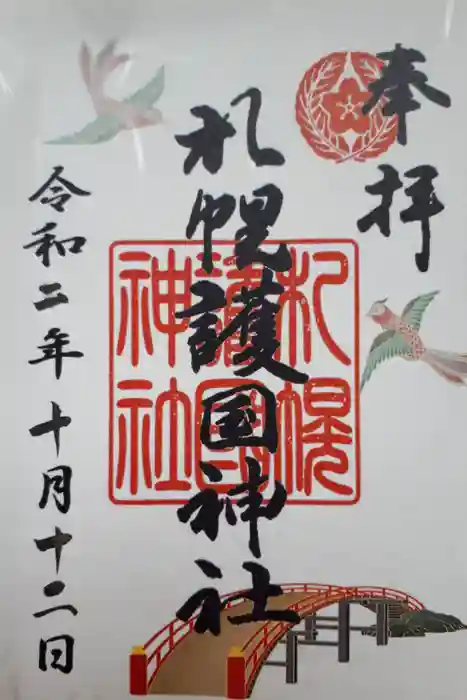 奉拝
札幌護国神社
札幌
護国
神社
令和二年十月十二日